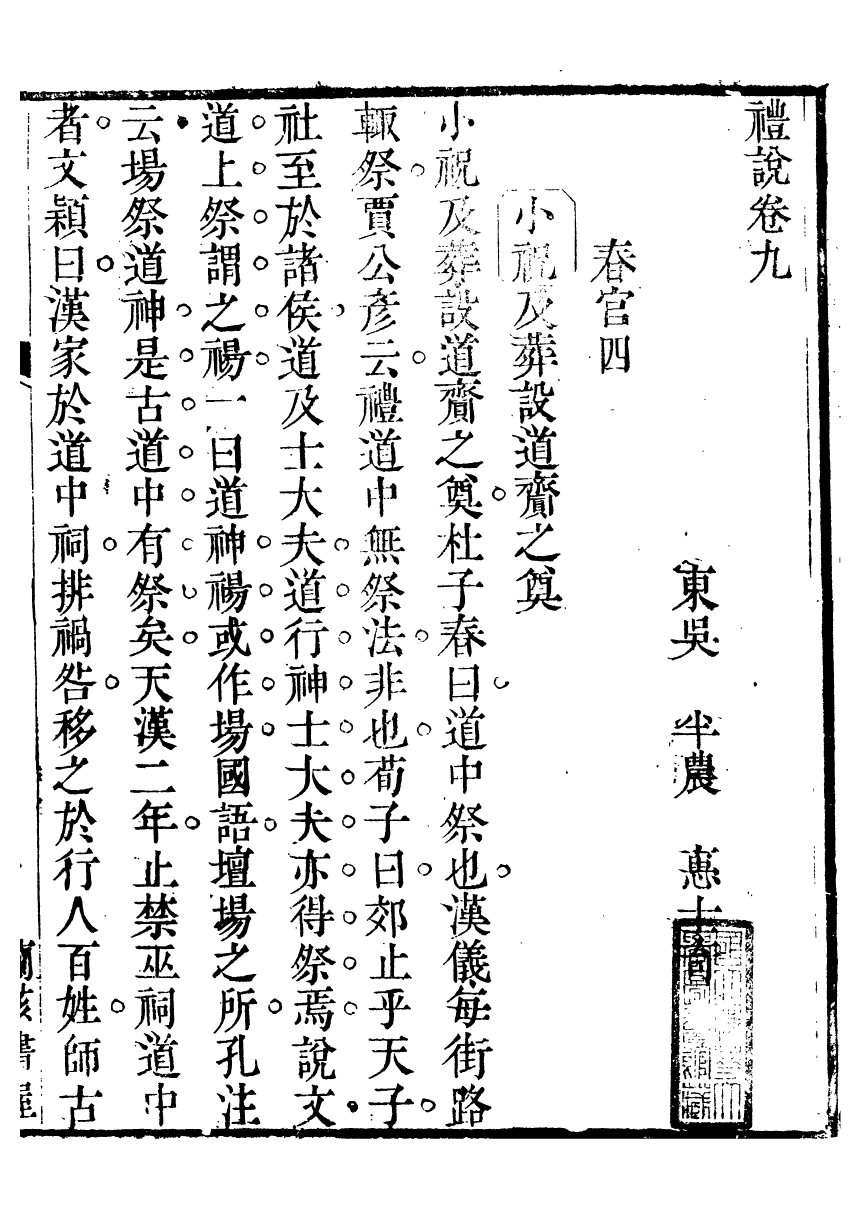 禮說卷九
東吳　半農　惠士奇
春官四
小祝及葬設道齎之奠
小祝及葬設道齎之奠杜子春曰道中祭也漢儀每街路
輙祭賈公彥云禮道中無祭法非也荀子曰郊止乎天子
社至於諸侯道及士大夫道行神士大夫亦得祭焉說文
道上祭謂之禓一曰道神禓或作場國語壇場之所孔注
云場祭道神是古道中有祭矣天漢二年止禁巫祠道中
者文穎曰漢家於道中祠排禍咎移之於行人百姓師古